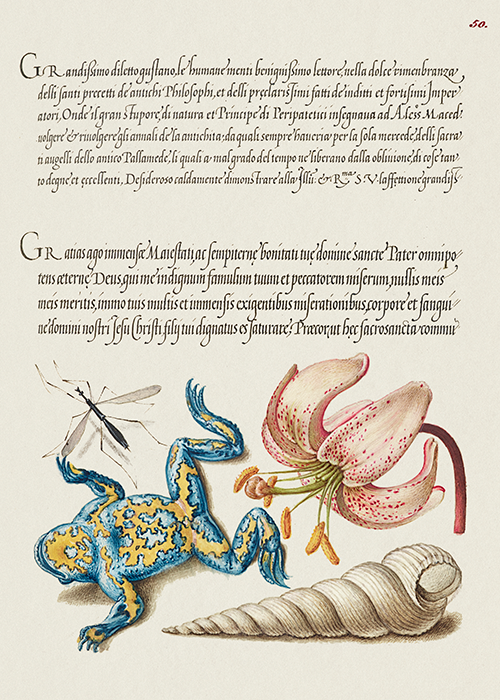 50.
GRandissimo diletto gustano, le humane menti benignissimo lettore, nella dolce rimembranza
delli santi precetti de antichi Philosophi, et delli pręclarissimi fatti de inditi et fortisimi Imper
atori, Onde il gran stupore, di natura et Principe di Peripatetici insegnaua ad Aless: Maced:
uolgere & riuolgere gli annali de la antichita: da quali sempre haueria per la sola mercede, delli sacra
ti augelli dello antico Pallamede, li quali a malgrado del tempo ne liberano dalla obliuione, di cose tan
to degne, et eccellenti, Desideroso caldamente dimonstrare alla Illu: & R.ma S.V. l'affettione grandiss
GRatias ago immensæ Maiestati, ac sempiternę bonitati tuę domine sancte Pater omnipo
tens æternę Deus, qui me indignum famulum tuum et peccatorem miserum, nullis meis
meis meritis, immo tuis multis et immensis exigentibus miserationibus, corpore et sangui
ne domini nostri Jesu Christi, filij tui dignatus es saturare, Præcor, ut hęc sacrosancta commu